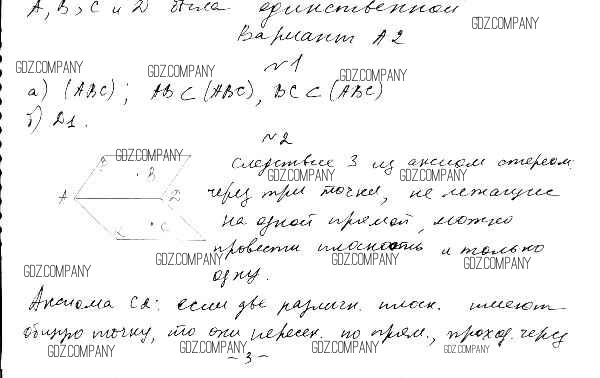 А, В, С и D была единственной
GDZ.COMPANY
Вариант А2
№1
GDZ.COMPANY GDZ.COMPANY GDZ.COMPANY
а) (АВС); АВ ⊂ (АВС), ВС ⊂ (АВС)
б) D1.
GDZ.COMPANY GDZ.COMPANY
№2
GDZ.COMPANY
А В С
Следствие 3 из аксиом стереом.
GDZ.COMPANY GDZ.COMPANY
через три точки, не лежащие
на одной прямой, можно
провести плоскость и только
одну.
GDZ.COMPANY GDZ.COMPANY GDZ.COMPANY GDZ.COMPANY
Аксиома С2: если две различн. плоск. имеют
общую точку, то они пересек. по прям., проход. через
GDZ.COMPANY GDZ.COMPANY GDZ.COMPANY GDZ.COMPANY
- 3 -